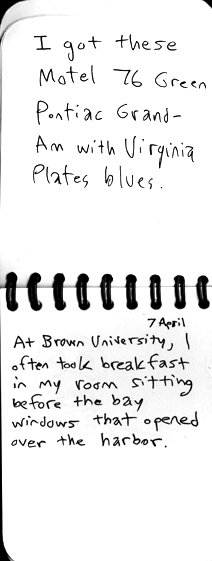 I got these
Motel 76 Green
Pontiac Grand-
Am with Virginia
Plates blues.
7 April
At Brown University, I
often took breakfast
in my room sitting
before the bay
windows that opened
over the harbor.